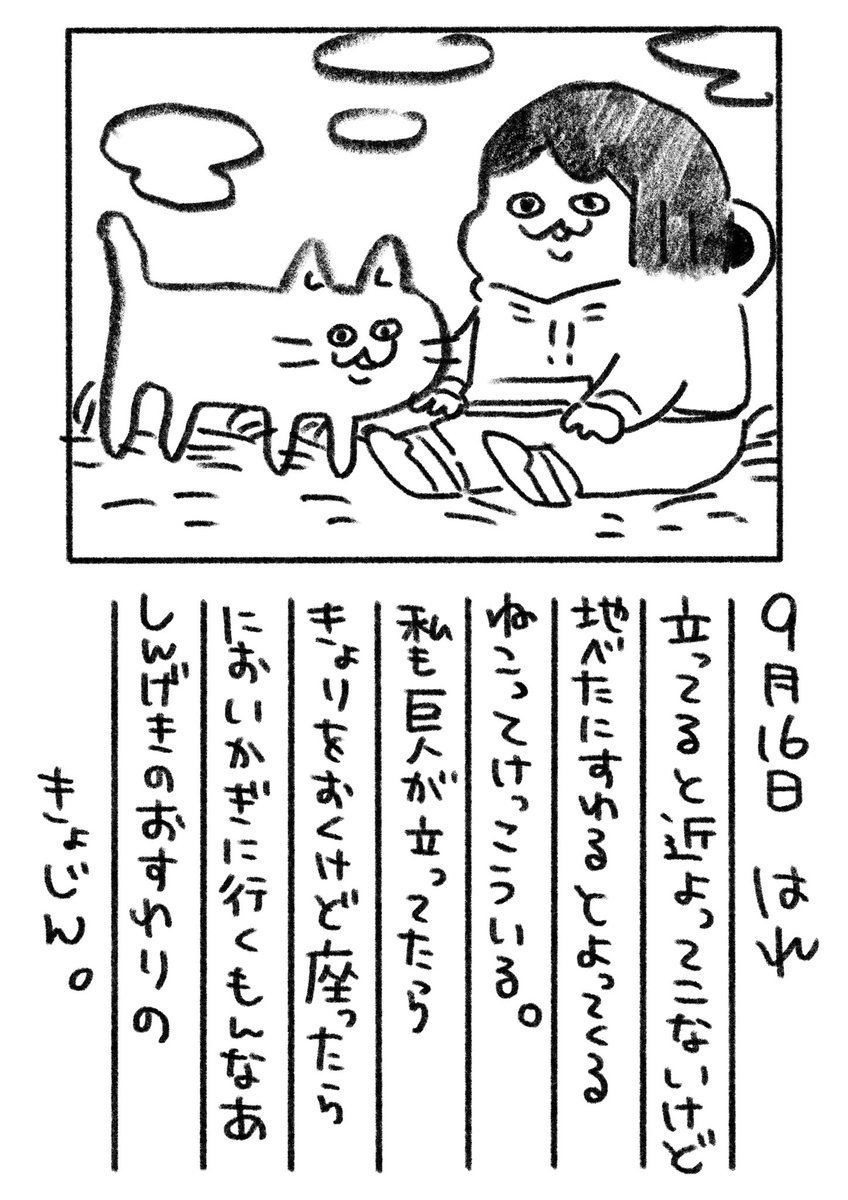 9月16日 はれ
立ってると近よってこないけど
地べたにすわるとよってくる
ねこってけっこういる。
私も巨人が立ってたら
きょりをおくけど座ったら
においかぎに行くもんなあ
しんげきのおすわりの
きょじん。